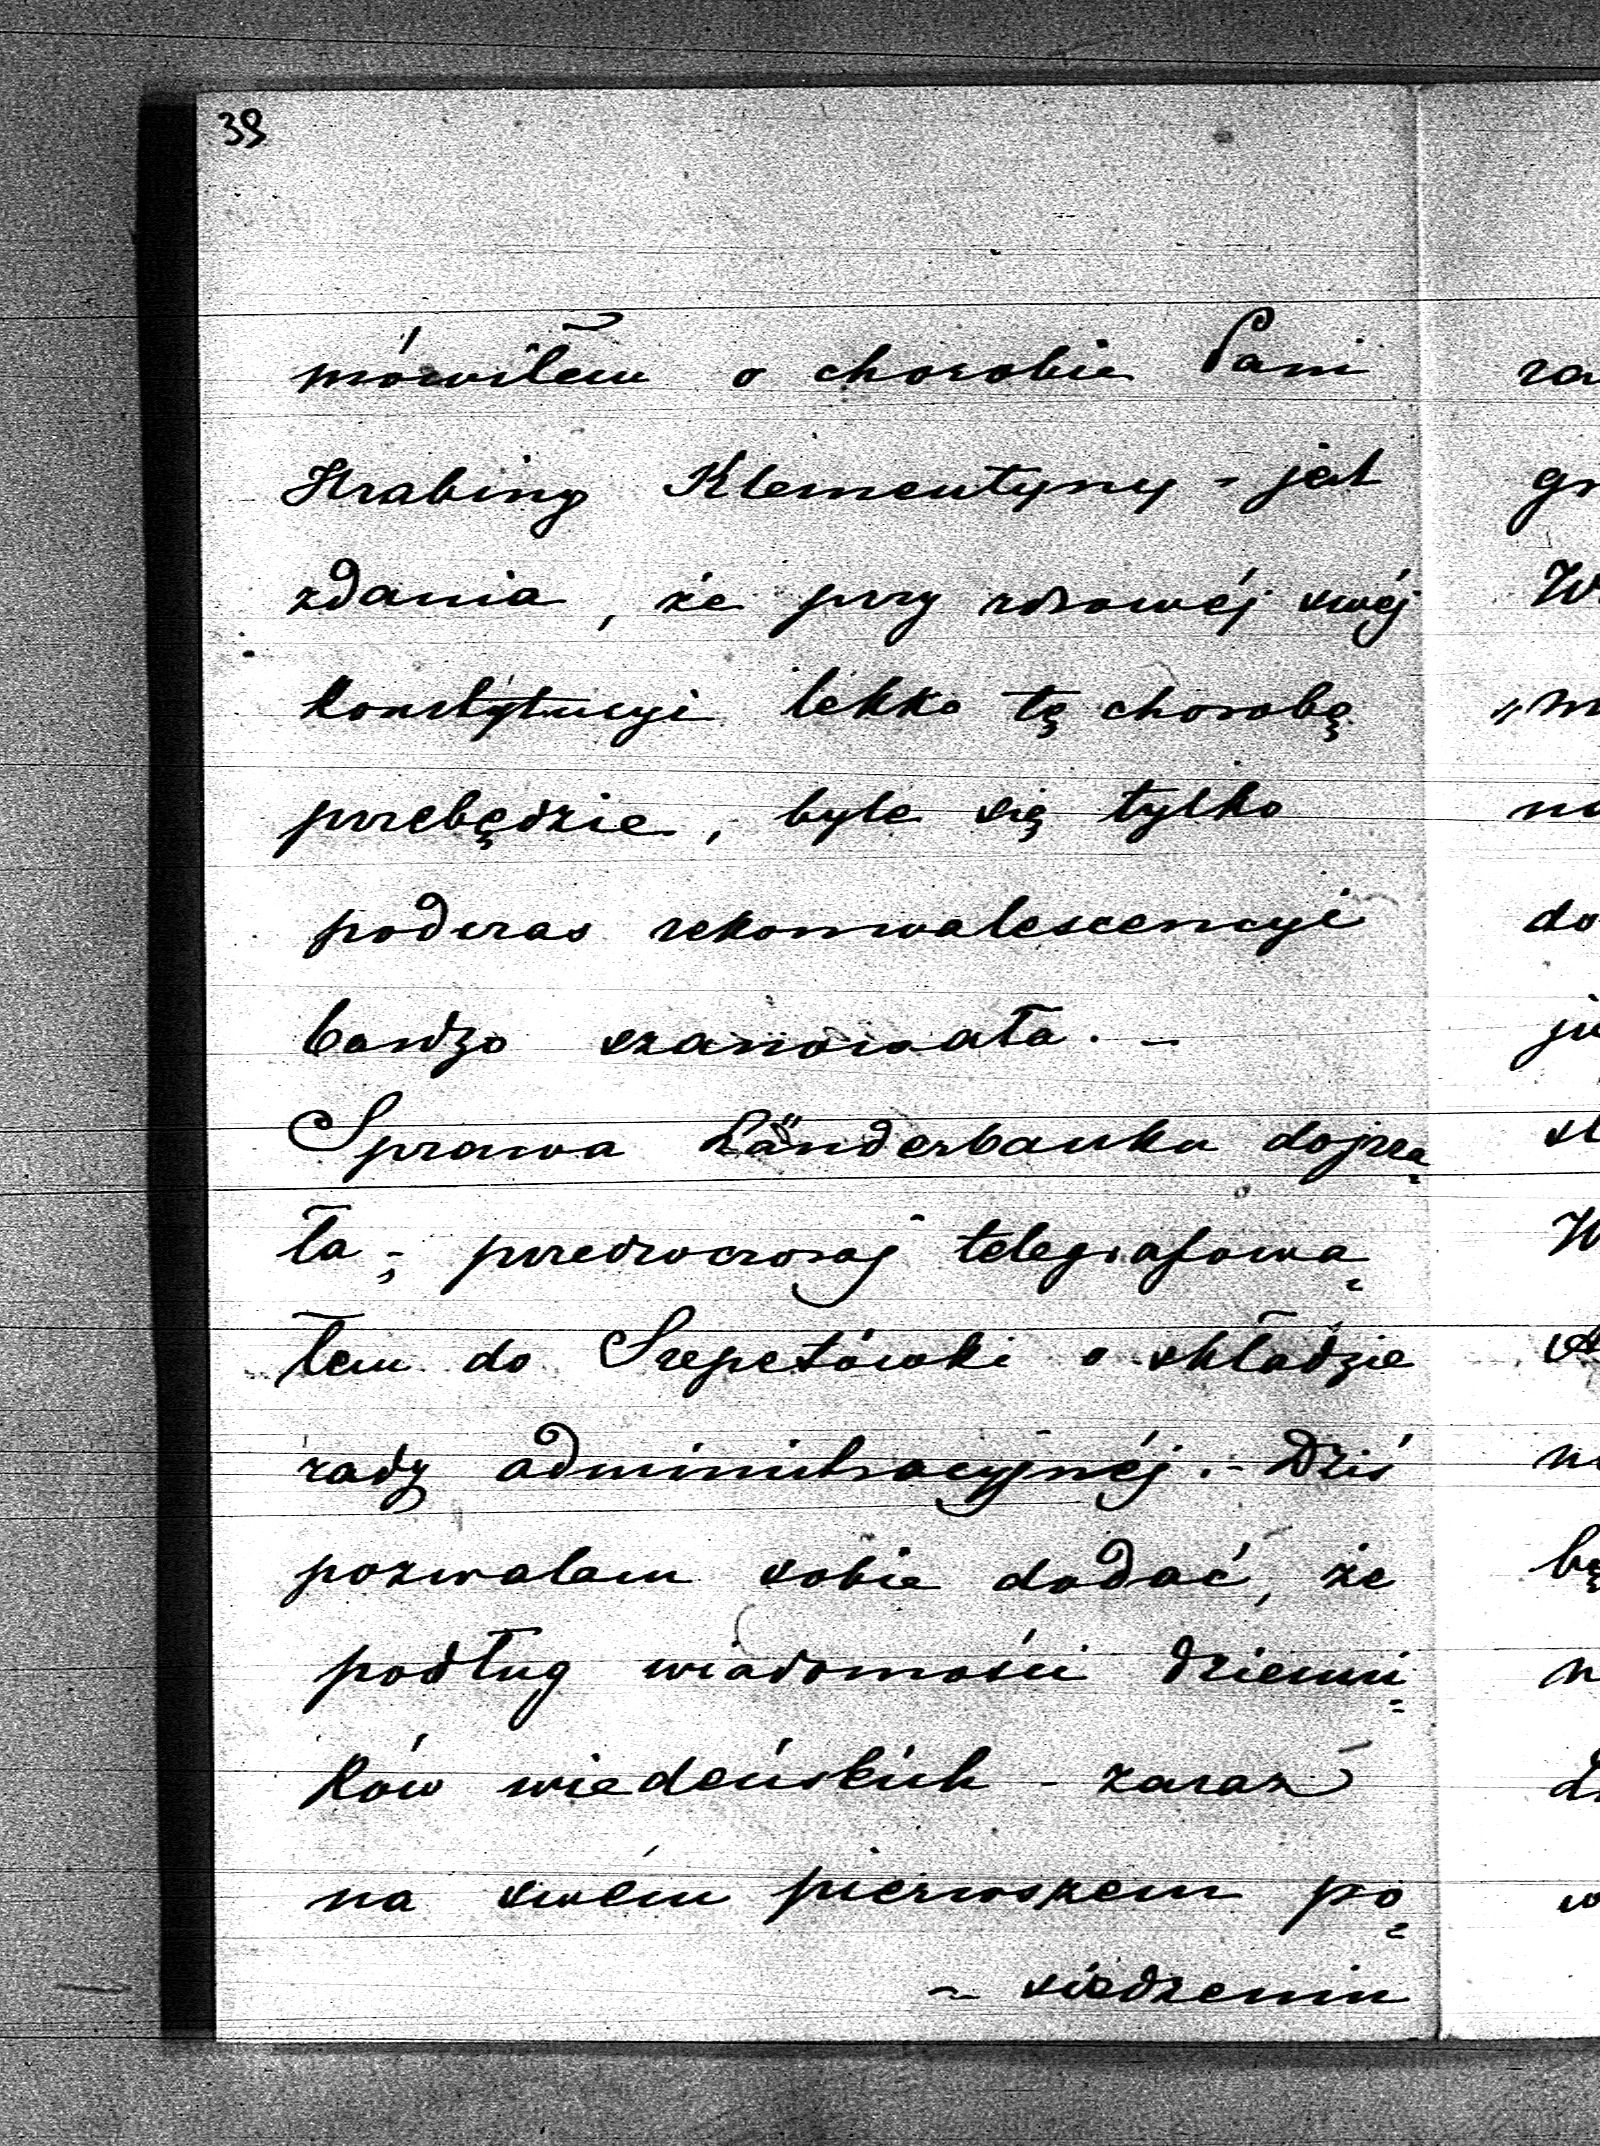 39
mówiłem o chorobie Pani
Hrabiny Klementyny - jest
zdania, że przy zdrowéj swéj
konstytucyi lekko tę chorobę
przebędzie, byle się tylko
podczas rekonwalescencyi
bardzo szanowała. -
Sprawa Länderbanku dojrza=
ła; przedwczoraj telegrafowa=
łem do Szepetówki o składzie
rady administracyjnéj. - Dziś
pozwalam sobie dodać, że
podług wiadomości dzienni=
ków wiedeńskich - zaraz
na swém pierwszem po=
~ siedzeniu